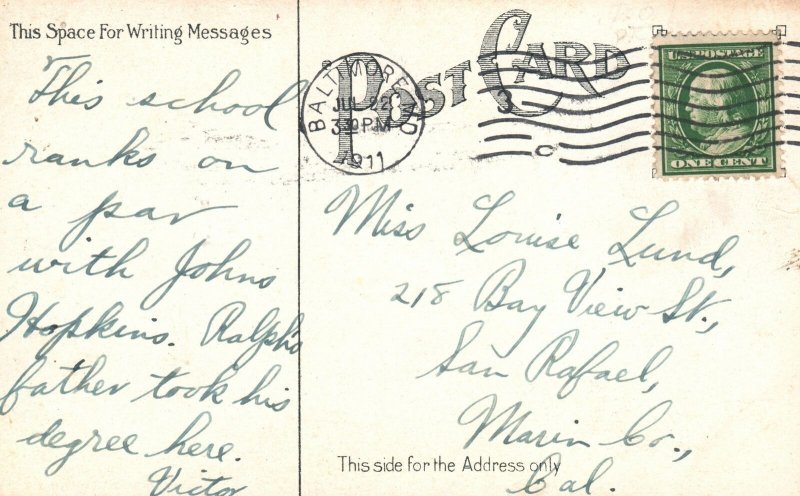 This Space For Writing Messages
POST CARD
BALTIMORE, MD.
JUL 22
330 PM
1911
3
C
U.S. POSTAGE
ONE CENT
This school
ranks on
a par
with Johns
Hopkins. Ralph's
father took his
degree here.
Victor
Miss Louise Lund,
218 Bay View St.,
San Rafael,
Marin Co.,
Cal.
This side for the Address only